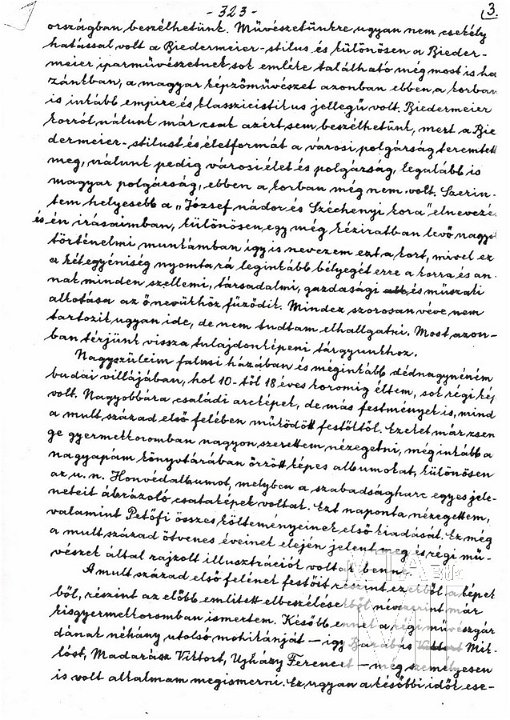 - 323 -
3.
országban beszélhetünk. Művészetünkre, ugyan nem csekély
hatással volt a Biedermeier-stilus és különösen a Bieder-
meier iparművészetnek sok emléke található még most is ha
zánkban, a magyar képzőművészet azonban ebben, a korban
is inkább empire és klasszicistikus jellegű volt. Biedermeier
korról nálunk már csak azért sem beszélhetünk, mert a Bie
dermeier-stilust és életformát a városi polgárság teremtett
meg, nálunk pedig városi élet és polgárság, legalább is
magyar polgárság, ebben a korban még nem volt. Szerin-
tem helyesebb a „József nádor és Széchenyi kora" elnevezés
és én irásaimban, különösen egy még kéziratban levő nagyobb
történelmi munkámban így is nevezem ezt a kort, mivel ez
a két egyéniség nyomta rá leginkább bélyegét erre a korra és an-
nak minden szellemi, társadalmi, gazdasági és műszaki
alkotása az ő nevükhöz fűződik. Mindez szorosan véve nem
tartozik ugyan ide, de nem tudtam elhallgatni. Most azon-
ban térjünk vissza tulajdonképeni tárgyunkhoz.
Nagyszüleim falusi házában és méginkább dédnagynéném
budai villájában, hol 10-től 18 éves koromig éltem, sok régi kép
volt. Nagyobbára családi arcképek, de más festmények is, mind
a mult század első felében működött festőktől. Ezeket már zsen
ge gyermekkoromban nagyon szerettem nézegetni, még inkább a
nagyapám könyvtárában őrzött képes albumokat, különösen
az u.n. Honvédalbumot, melyben a szabadságharc egyes jele-
neteit ábrázoló csataképek voltak. Ezt naponta nézegettem,
valamint Petőfi összes költeményeinek első kiadását. Ez még
a mult század ötvenes éveinek elején jelent meg és régi mű-
vészek által rajzolt illusztrációk voltak benne.
A mult század első felének festőit részint ezekből a képek
ből, részint az előbb említett elbeszélésekből névszerint már
kisgyermekkoromban ismertem. Később ennek a régi művészgár
dának néhány utolsó mohikánját - így Barabás Mik-
lóst, Madarász Viktort, Ujházy Ferencet - még személyesen
is volt alkalmam megismerni. Ez ugyan a későbbi időt ese-